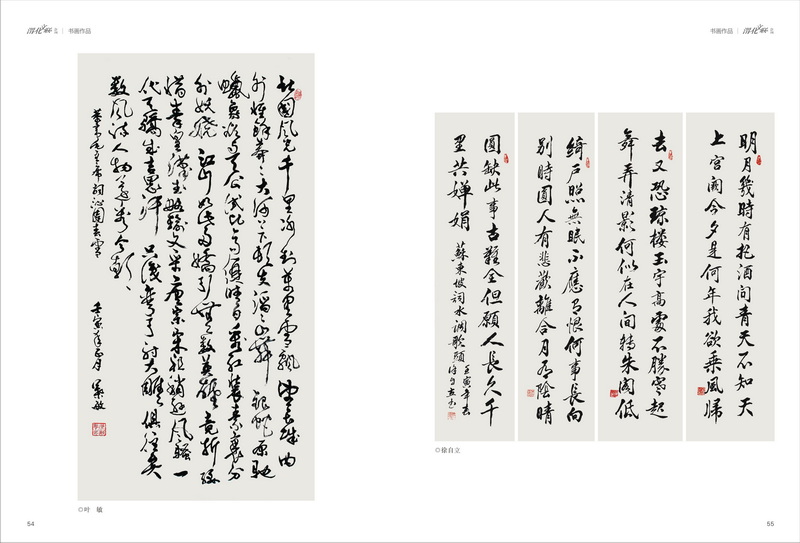 书画作品
北國風光千里冰封万里雪飄望長城内
外惟餘莽莽大河上下頓失滔滔山舞銀蛇原馳
蠟象欲與天公試比高須晴日看紅裝素裹分
外妖嬈江山如此多嬌引無數英雄競折腰
惜秦皇漢武略輸文采唐宗宋祖稍遜風騷一
代天驕成吉思汗只識彎弓射大雕俱往矣
數風流人物還看今朝
毛主席詞沁園春雪
壬寅年正月 葉敏
◎叶 敏
54
书画作品
明月幾時有把酒问青天不知天
上宫阙今夕是何年我欲乘風歸
去又恐琼楼玉宇高處不勝寒起
舞弄清影何似在人间转朱阁低
绮户照無眠不應有恨何事長向
别時圆人有悲歡離合月有陰晴
圆缺此事古難全但願人長久千
里共嬋娟 蘇東坡詞水调歌頭 壬寅年
◎徐自立
55